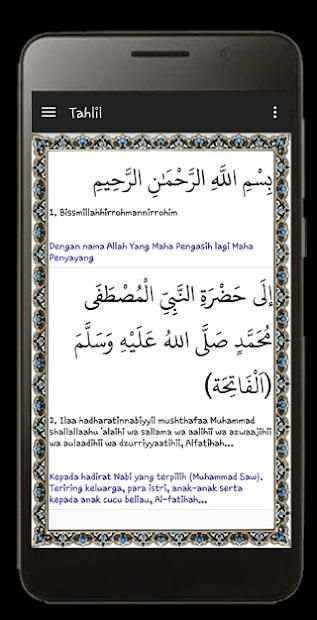 Tahlil
بِسْمِ اللَّهِ الرَّحْمَٰنِ الرَّحِيمِ
1. Bissmillahhirrohmannirrohim
Dengan nama Allah Yang Maha Pengasih lagi Maha
Penyayang
إِلَى حَضْرَةِ النَّبِيِّ الْمُصْطَفَى
مُحَمَّدٍ صَلَّى اللهُ عَلَيْهِ وَسَلَّمَ
(اَلْفَاتِحَة)
2. Ilaa hadharatinnabiyyii mushthafaa Muhammad
shallallaahu 'alaihi wa sallama wa aalihii wa azwaajihii
wa aulaadihii wa dzurriyyaatihii, Alfatihah...
Kepada hadirat Nabi yang terpilih (Muhammad Saw).
Teriring keluarga, para istri, anak-anak serta
kepada anak cucu beliau, Al-fatihah...